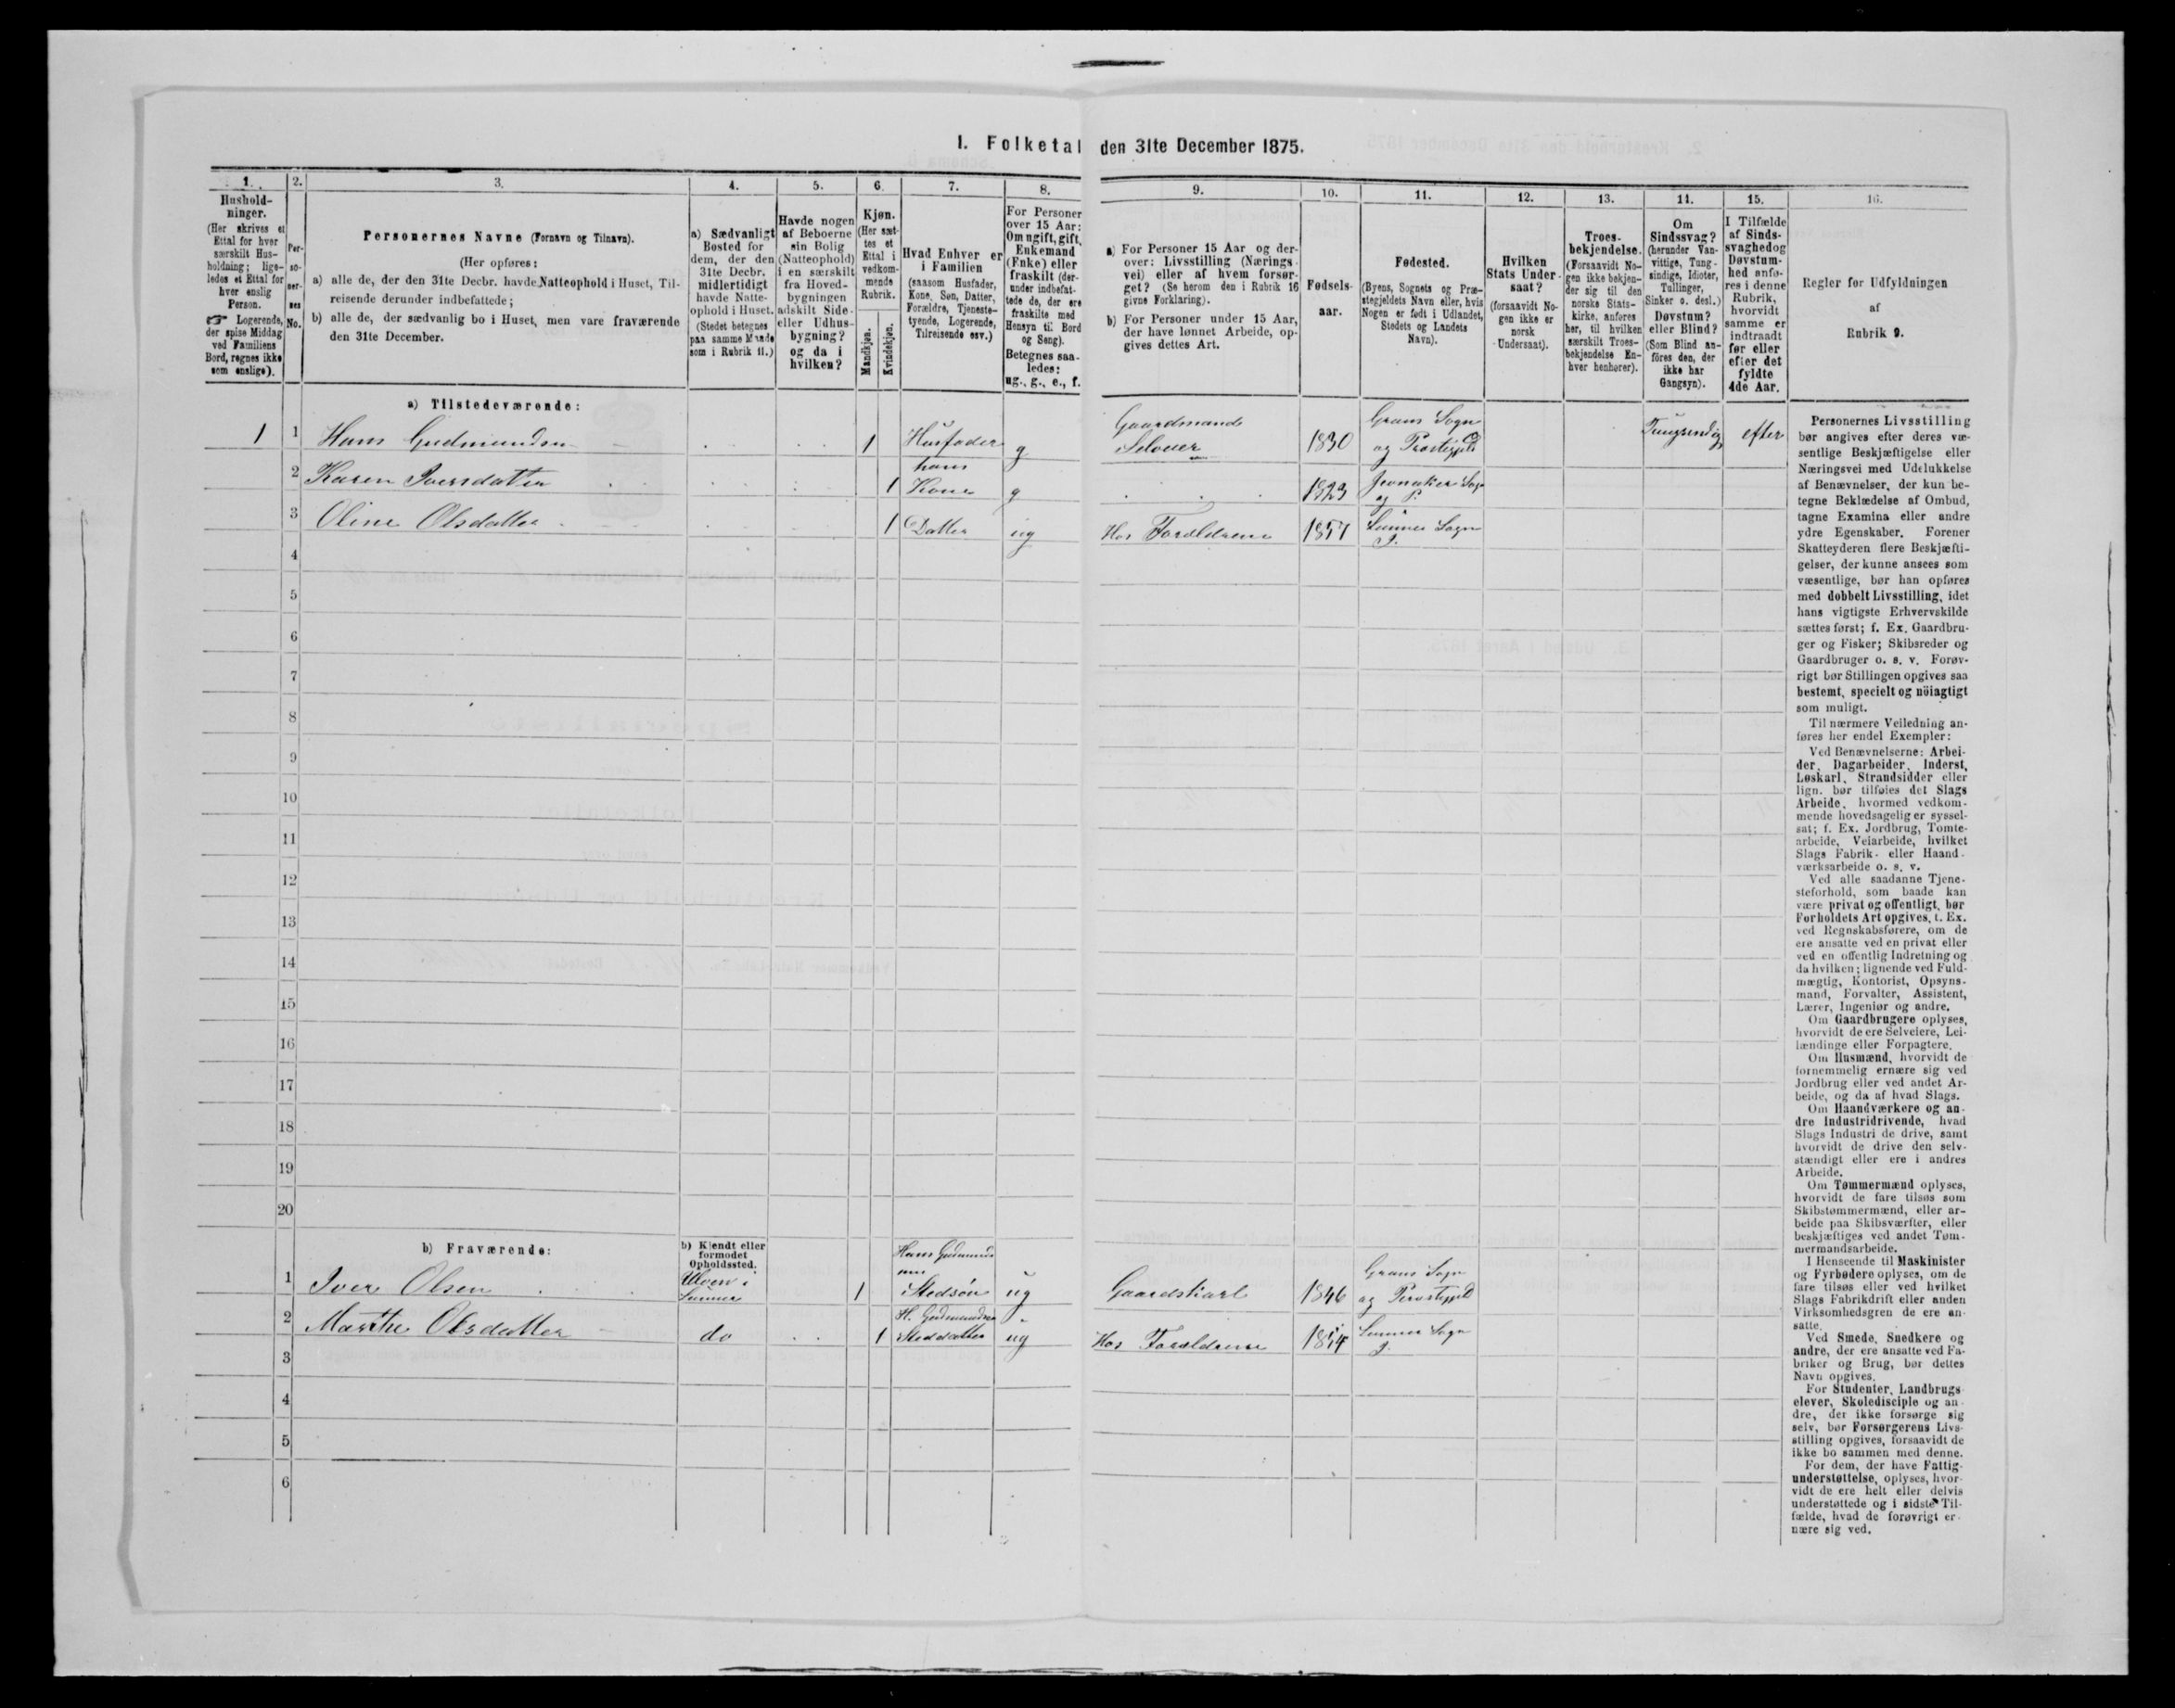 1. Folketal den 31te December 1875.
1.
2.
3.
4.
5.
6.
7.
8.
9.
10.
11.
12.
13.
11.
15.
16.
Hushold-
ninger.
(Her skrives et
Ettal for hver
særskilt Hus-
holdning; lige-
ledes et Ettal for
hver enslig
Person.
☞ Logerende,
der spise Middag
ved Familiens
Bord, regnes ikke
som enslige).
Per-
so-
ner-
nes
No.
Personernes Navne (Fornavn og Tilnavn).
(Her opføres:
a) alle de, der den 31te Decbr. havde Natteophold i Huset, Til-
reisende derunder indbefattede;
b) alle de, der sædvanlig bo i Huset, men vare fraværende
den 31te December.
a) Sædvanligt
Bosted for
dem, der den
31te Decbr.
midlertidigt
havde Natte-
ophold i Huset.
(Stedet betegnes
paa samme Maade
som i Rubrik 11.)
Havde nogen
af Beboerne
sin Bolig
(Natteophold)
i en særskilt
fra Hoved-
bygningen
adskilt Side-
eller Udhus-
bygning?
og da i
hvilken?
Kjøn.
(Her sæt-
tes et
Ettal i
vedkom-
mende
Rubrik.
Mandkjøn.
Kvindekjøn.
Hvad Enhver er
i Familien
(saasom Husfader,
Kone, Søn, Datter,
Forældre, Tjeneste-
tyende, Logerende,
Tilreisende osv.)
For Personer
over 15 Aar:
Om ugift, gift,
Enkemand
(Enke) eller
fraskilt (der-
under indbefat-
tede de, der ere
fraskilte med
Hensyn til Bord
og Seng).
Betegnes saa-
ledes:
ug., g., e., f.
a) For Personer 15 Aar og der-
over: Livsstilling (Nærings-
vei) eller af hvem forsør-
get? (Se herom den i Rubrik 16
givne Forklaring).
b) For Personer under 15 Aar,
der have lønnet Arbeide, op-
gives dettes Art.
Fødsels-
aar.
Fødested.
(Byens, Sognets og Præ-
stegjeldets Navn eller, hvis
Nogen er født i Udlandet,
Stedets og Landets
Navn).
Hvilken
Stats Under-
saat?
(forsaavidt No-
gen ikke er
norsk
Undersaat).
Troes-
bekjendelse.
(Forsaavidt No-
gen ikke bekjen-
der sig til den
norske Stats-
kirke, anføres
her, til hvilken
særskilt Troes-
bekjendelse En-
hver henhører).
Om
Sindssvag?
(herunder Van-
vittige, Tung-
sindige, Idioter,
Tullinger,
Sinker o. desl.)
Døvstum?
eller Blind?
(Som Blind an-
föres den, der
ikke har
Gangsyn).
I Tilfælde
af Sinds-
svaghed og
Døvstum-
hed anfø-
res i denne
Rubrik,
hvorvidt
samme er
indtraadt
før eller
efter det
fyldte
4de Aar.
Regler for Udfyldningen
af
Rubrik 9.
a) Tilstedeværende:
1 1 Hans Gudmundsen 1 Husfader g Gaardmand Selveier 1830 Grans Sogn og Præstegjeld Tungsindig efter
2 Karen Iversdatter 1 hans Kone g 1823 Jevnaker Sogn og P.
3 Oline Olsdatter 1 Datter ug Hos Forældrene 1857 Lunner Sogn J.
4
5
6
7
8
9
10
11
12
13
14
15
16
17
18
19
20
b) Fraværende:
b) Kjendt eller
formodet
Opholdssted.
1 Iver Olsen Ulven i Lunner 1 Hans Gudmundsens Stedsøn ug Gaardskarl 1846 Grans Sogn og Præstegjeld
2 Marthe Olsdatter do 1 H. Gudmundsen Steddatter ug Hos Forældrene 1854 Lunner Sogn J.
3
4
5
6
Personernes Livsstilling
bør angives efter deres væ-
sentlige Beskjæftigelse eller
Næringsvei med Udelukkelse
af Benævnelser, der kun be-
tegne Beklædelse af Ombud,
tagne Examina eller andre
ydre Egenskaber. Forener
Skatteyderen flere Beskjæfti-
gelser, der kunne ansees som
væsentlige, bør han opføres
med dobbelt Livsstilling, idet
hans vigtigste Erhvervskilde
sættes først; f. Ex. Gaardbru-
ger og Fisker; Skibsreder og
Gaardbruger o. s. v. Forøv-
rigt bør Stillingen opgives saa
bestemt, specielt og nöiagtigt
som muligt.
Til nærmere Veiledning an-
føres her endel Exempler:
Ved Benævnelserne: Arbei-
der, Dagarbeider, Inderst,
Løskarl, Strandsidder eller
lign. bør tilføies det Slags
Arbeide, hvormed vedkom-
mende hovedsagelig er syssel-
sat; f. Ex. Jordbrug, Tomte-
arbeide, Veiarbeide, hvilket
Slags Fabrik- eller Haand-
værksarbeide o. s. v.
Ved alle saadanne Tjene-
steforhold, som baade kan
være privat og offentligt, bør
Forholdets Art opgives, t. Ex.
ved Regnskabsførere, om de
ere ansatte ved en privat eller
ved en offentlig Indretning og
da hvilken; lignende ved Fuld-
mægtig, Kontorist, Opsyns-
mand, Forvalter, Assistent,
Lærer, Ingeniør og andre.
Om Gaardbrugere oplyses,
hvorvidt de ere Selveiere, Lei-
lændinge eller Forpagtere.
Om Husmænd, hvorvidt de
fornemmelig ernære sig ved
Jordbrug eller ved andet Ar-
beide, og da af hvad Slags.
Om Haandværkere og an-
dre Industridrivende, hvad
Slags Industri de drive, samt
hvorvidt de drive den selv-
stændigt eller ere i andres
Arbeide.
Om Tømmermænd oplyses,
hvorvidt de fare tilsøs som
Skibstømmermænd, eller ar-
beide paa Skibsværfter, eller
beskjæftiges ved andet Tøm-
mermandsarbeide.
I Henseende til Maskinister
og Fyrbødere oplyses, om de
fare tilsøs eller ved hvilket
Slags Fabrikdrift eller anden
Virksomhedsgren de ere an-
satte.
Ved Smede, Snedkere og
andre, der ere ansatte ved Fa-
briker og Brug, bør dettes
Navn opgives.
For Studenter, Landbrugs-
elever, Skoledisciple og an-
dre, der ikke forsørge sig
selv, bør Forsørgerens Livs-
stilling opgives, forsaavidt de
ikke bo sammen med denne.
For dem, der have Fattig-
understøttelse, oplyses, hvor-
vidt de ere helt eller delvis
understøttede og i sidste Til-
fælde, hvad de forøvrigt er-
nære sig ved.